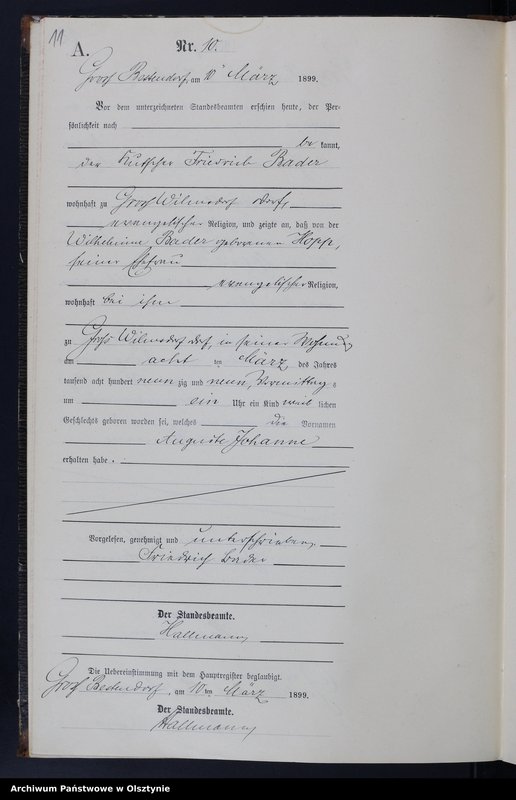 11
A.
Nr. 10.
Gross Bestendorf, am 10ten März 1899.
Vor dem unterzeichneten Standesbeamten erschien heute, der Per-
sönlichkeit nach
be kannt,
der Kutscher Friedrich Bader
wohnhaft zu Gross Wilmsdorf Dorf,
evangelischer Religion, und zeigte an, daß von der
Wilhelmine Bader geborenen Hopp,
seiner Ehefrau
evangelischer Religion,
wohnhaft bei ihm
zu Gross Wilmsdorf Dorf, in seiner Wohnung
am acht ten März des Jahres
tausend acht hundert neun zig und neun, Vormittag s
um ein Uhr ein Kind weib lichen
Geschlechts geboren worden sei, welches die Vornamen
Auguste Johanne
erhalten habe.
Vorgelesen, genehmigt und unterschrieben
Friedrich Bader
Der Standesbeamte.
Hallmann
Die Uebereinstimmung mit dem Hauptregister beglaubigt.
Gross Bestendorf, am 10ten März 1899.
Der Standesbeamte.
Hallmann
Archiwum Państwowe w Olsztynie